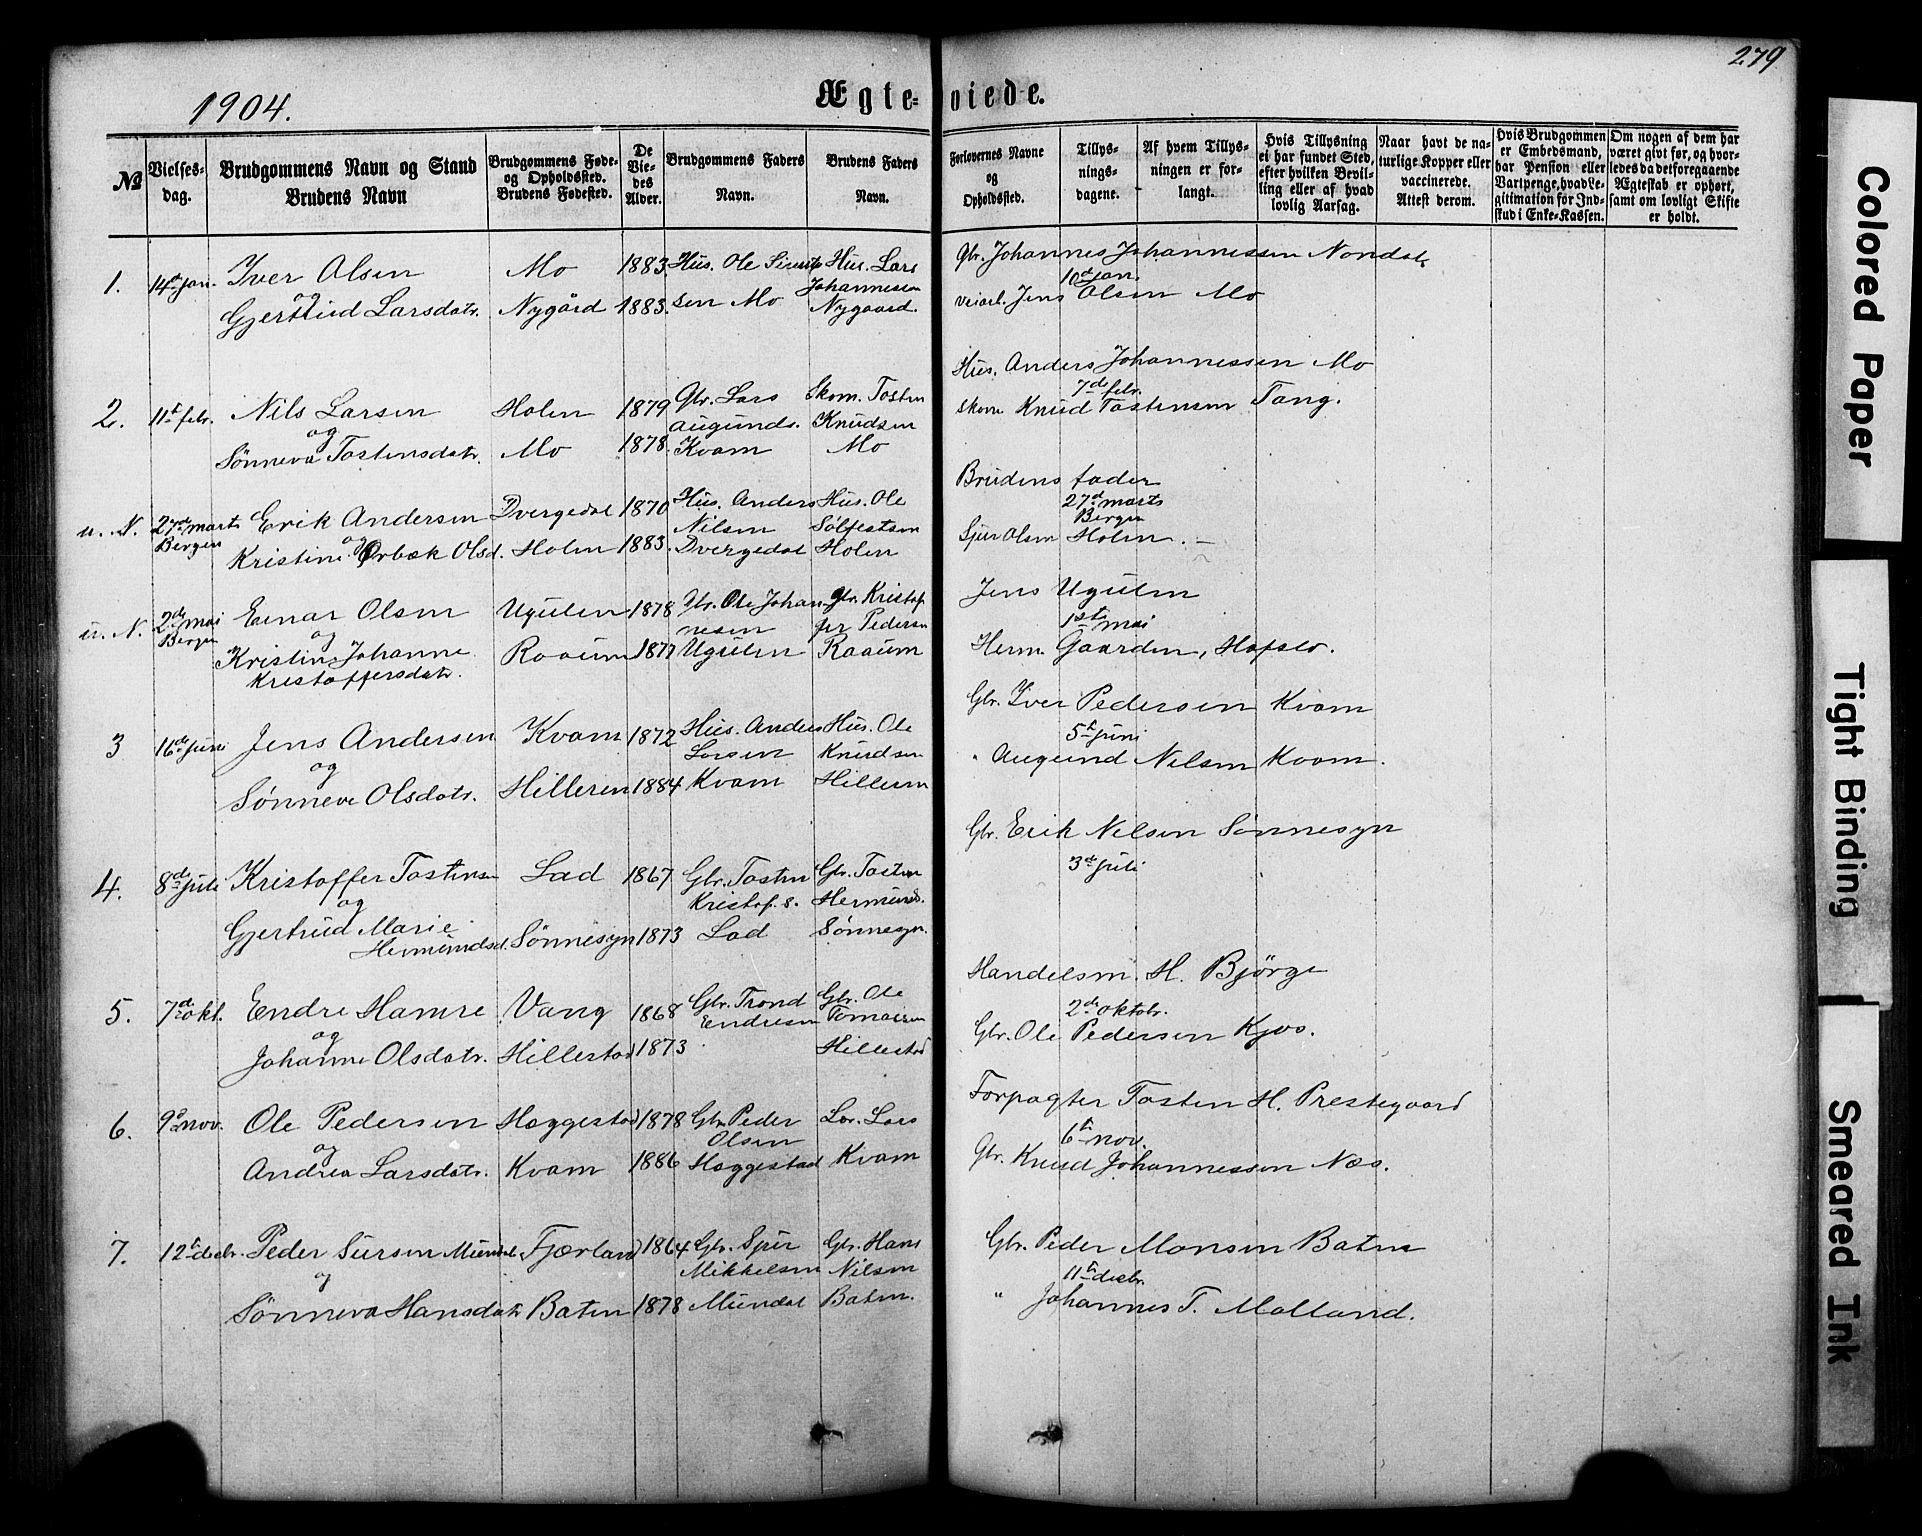 279
1904.
Ægte-viede.
№
Vielses-dag.
Brudgommens Navn og Stand
Brudens Navn
Brudgommens Føde- og Opholdssted.
Brudens Fødested.
De Vie-des Alder.
Brudgommens Faders Navn.
Brudens Faders Navn.
Forlovernes Navne og Opholdssted.
Tillys-nings-dagene.
Af hvem Tillys-ningen er for-langt.
Hvis Tillysning ei har fundet Sted, efter hvilken Bevil-ling eller af hvad lovlig Aarsag.
Naar havt de na-turlige Kopper eller vaccinerede. Attest derom.
Hvis Brudgommen er Embedsmand, har Pension eller Vartpenge, hvad Le-gitimation for Ind-skud i Enke-Kassen.
Om nogen af dem har været givt før, og hvor-ledes da det foregaaende Ægteskab er ophørt, samt om lovligt Skifte er holdt.
1. 14de jan. Iver Olsen Mo 1883 Hus. Ole Hus. Lars Gbr. Johannes Johannessen Nondal
og Johannesen 10de jan.
Gjertrud Larsdatr. Nygård 1883. sen Mo Nygaard. Jens Olsen Mo
Hus. Anders Johannessen Mo
2. 11te febr. Nils Larsen Holen 1879 Gbr. Lars Skom. Tosten 7de febr.
og augunds. Knudsen Skom Knud Tostensen Tang.
Sønneva Tostensdatr. Mo 1878. Kvam Mo
Brudens fader
u. N. 27de marts Erik Andersen Dvergedal 1870 Hus. Anders Hus. Ole 27de marts
Bergen og Nilsen Sølfestsen Bergen
Kristine Ørbæk Olsd. Holen 1883. Dvergedal Holen Sjur Olsen Holen. —
Jens Ugulen
u. N. 2de mai Einar Olsen Ugulen 1878 Gbr. Ole Johan Gbr. Kristof 1ste mai
Bergen og nesen fer Pedersen
Kristine Johanne Raaum 1877 Ugulen Raaum Herm. Gaarden, Hafslo.
Kristoffersdatr.
Gbr. Iver Pedersen Kvam
3 16de juni Jens Andersen Kvam 1872 Hus. Anders Hus. Ole 5te juni
og Larsen Knudsen " Augund Nilsen Kvam.
Sønneve Olsdatr. Hilleren 1884 Kvam Hilleren
Gbr. Erik Nilsen Sønnesyn
4. 8de juli Kristoffer Tostensen Lad 1867 Gbr. Tosten Gbr. Tosten 3de juli
og Kristof. s. Hermunds.
Gjertrud Marie Sønnesyn 1873 Lad Sønnesyn.
Hermundsd.
Handelsm. H. Bjørge
5. 7de okt. Endre Hamre Vang 1868 Gbr. Trond Gbr. Ole 2de oktobr.
og Endresen Tomassen Gbr. Ole Pedersen Kjos.
Johanne Olsdatr. Hillestad 1873 Hillestad
Forpagter Tosten H. Prestegaard
6. 9de nov. Ole Pedersen Heggestad 1878 Gbr. Peder Lars 6te nov.
og Olsen
Andrea Larsdatr. Kvam 1886 Heggestad Kvam Gbr. Knud Johannessen Næs.
7. 12te decbr. Peder Sursen Mundal Fjærland 1864 Gbr. Sjur Gbr. Hans Gbr. Peder Monsen Baten
og Mikkelsen Nilsen 11te decbr.
Sønneva Hansdatr Baten 1878 Mundal Baten. " Johannes T. Molland.
Colored Paper
Tight Binding
Smeared Ink